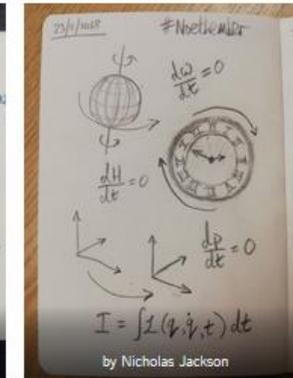 23/11/2018 #Noethember
dω/dt = 0
dH/dt = 0
dp/dt = 0
I = ∫L(q, q̇, t) dt
by Nicholas Jackson